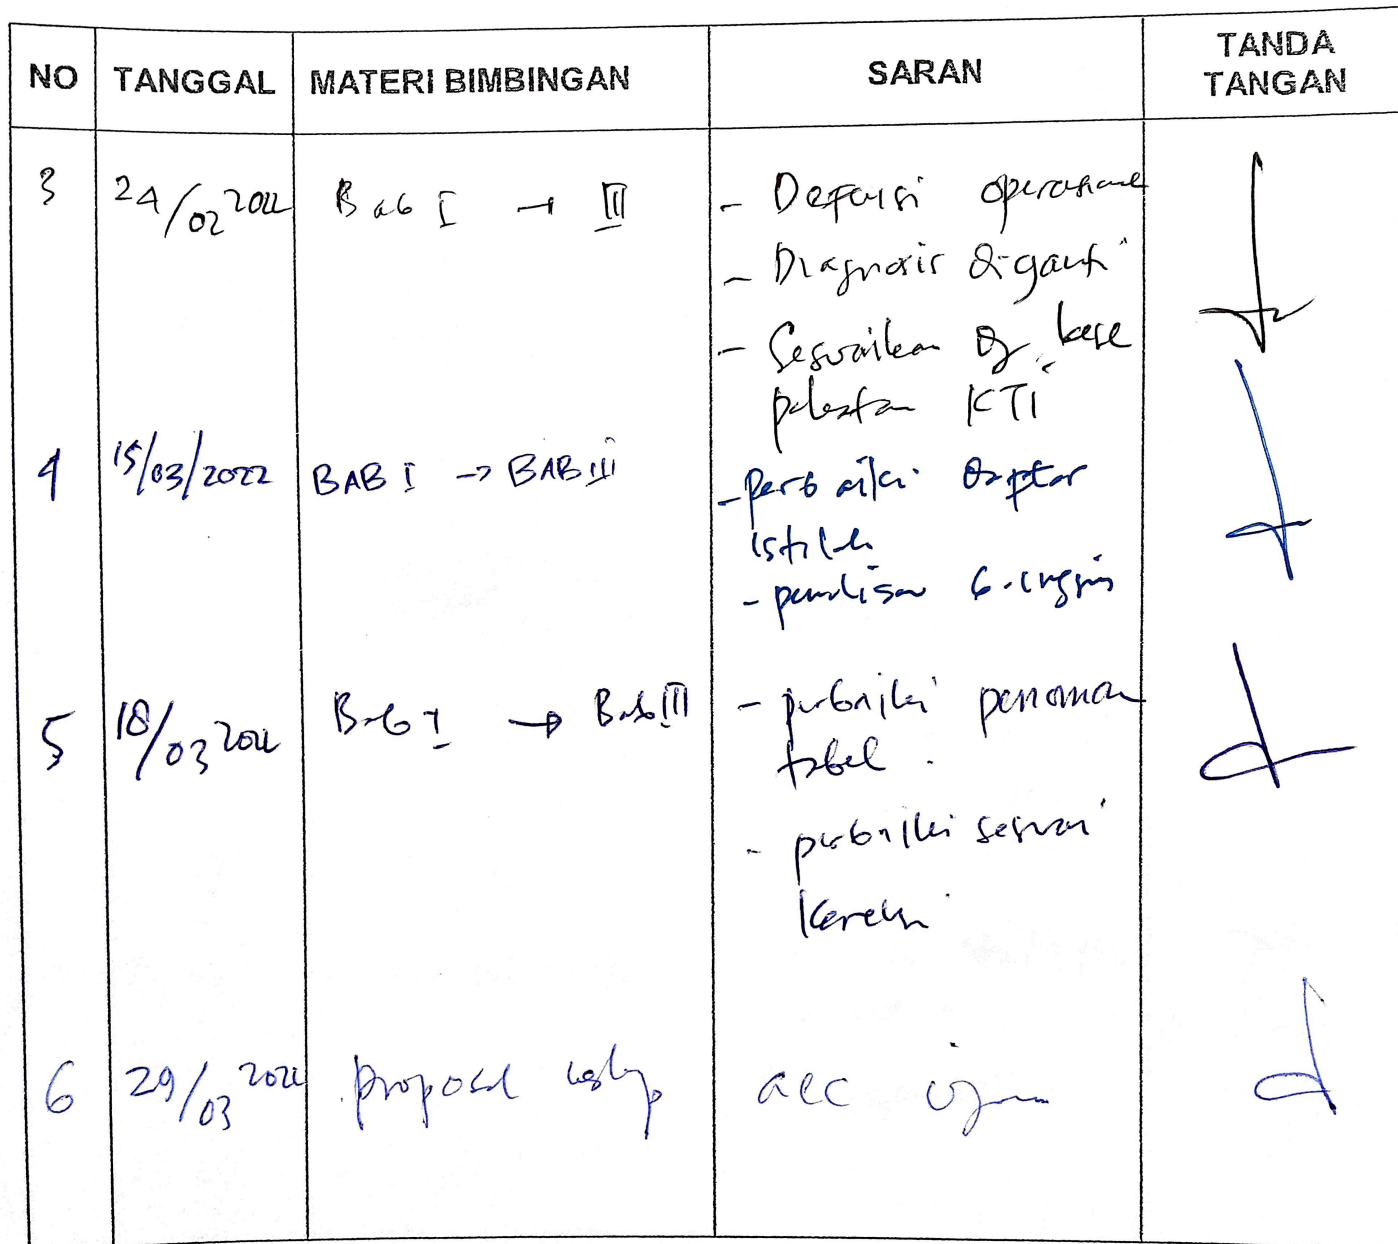 NO TANGGAL MATERI BIMBINGAN SARAN TANDA TANGAN
3 24/02 2022 Bab I → III - Definisi operasional
- Diagnosis diganti
- Sesuaikan dg
KTI
4 15/03/2022 BAB I -> BAB III - perbaiki daftar
istilah
- penulisan b.inggris
5 18/03 2022 Bab I → Bab III - perbaiki penomoran
tabel.
- perbaiki sesuai
koreksi
6 29/03 2022 proposal acc ujian